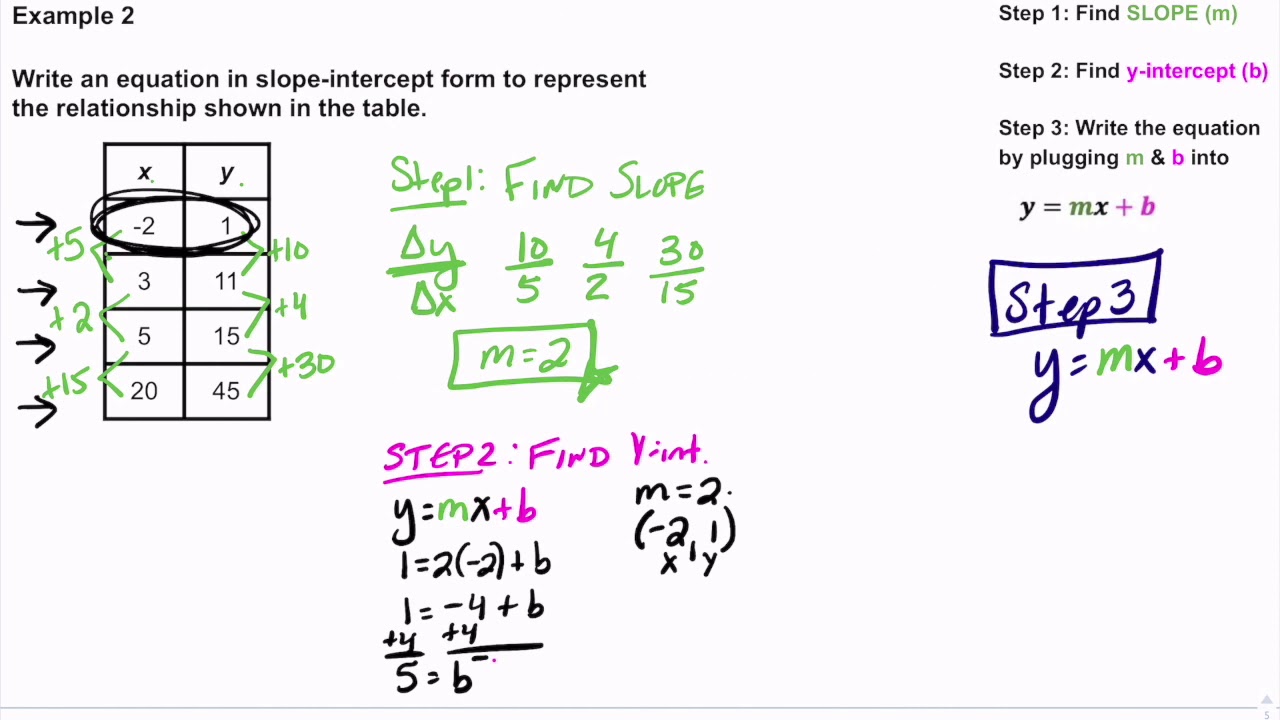 Example 2
Write an equation in slope-intercept form to represent
the relationship shown in the table.
x y
-2 1
3 11
5 15
20 45
+5 +10
+2 +4
+15 +30
Step1: FIND SLOPE
Δy/Δx 10/5 4/2 30/15
m=2
STEP2: FIND Y-int.
y=mx+b
1=2(-2)+b
1=-4+b
+4 +4
5=b
m=2
(-2, 1)
x, y
Step 1: Find SLOPE (m)
Step 2: Find y-intercept (b)
Step 3: Write the equation
by plugging m & b into
y = mx + b
Step 3
y=mx+b
5